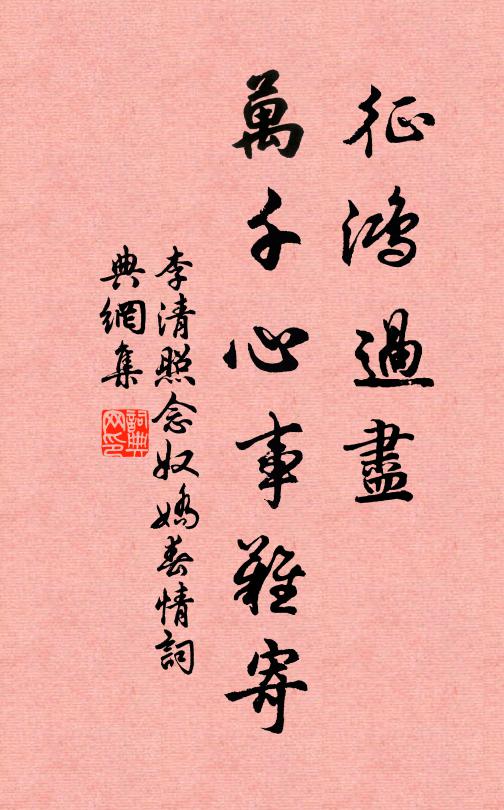 征鴻過盡
萬千心事難寄
李清照念奴嬌春情詞
典網集
詞典網印